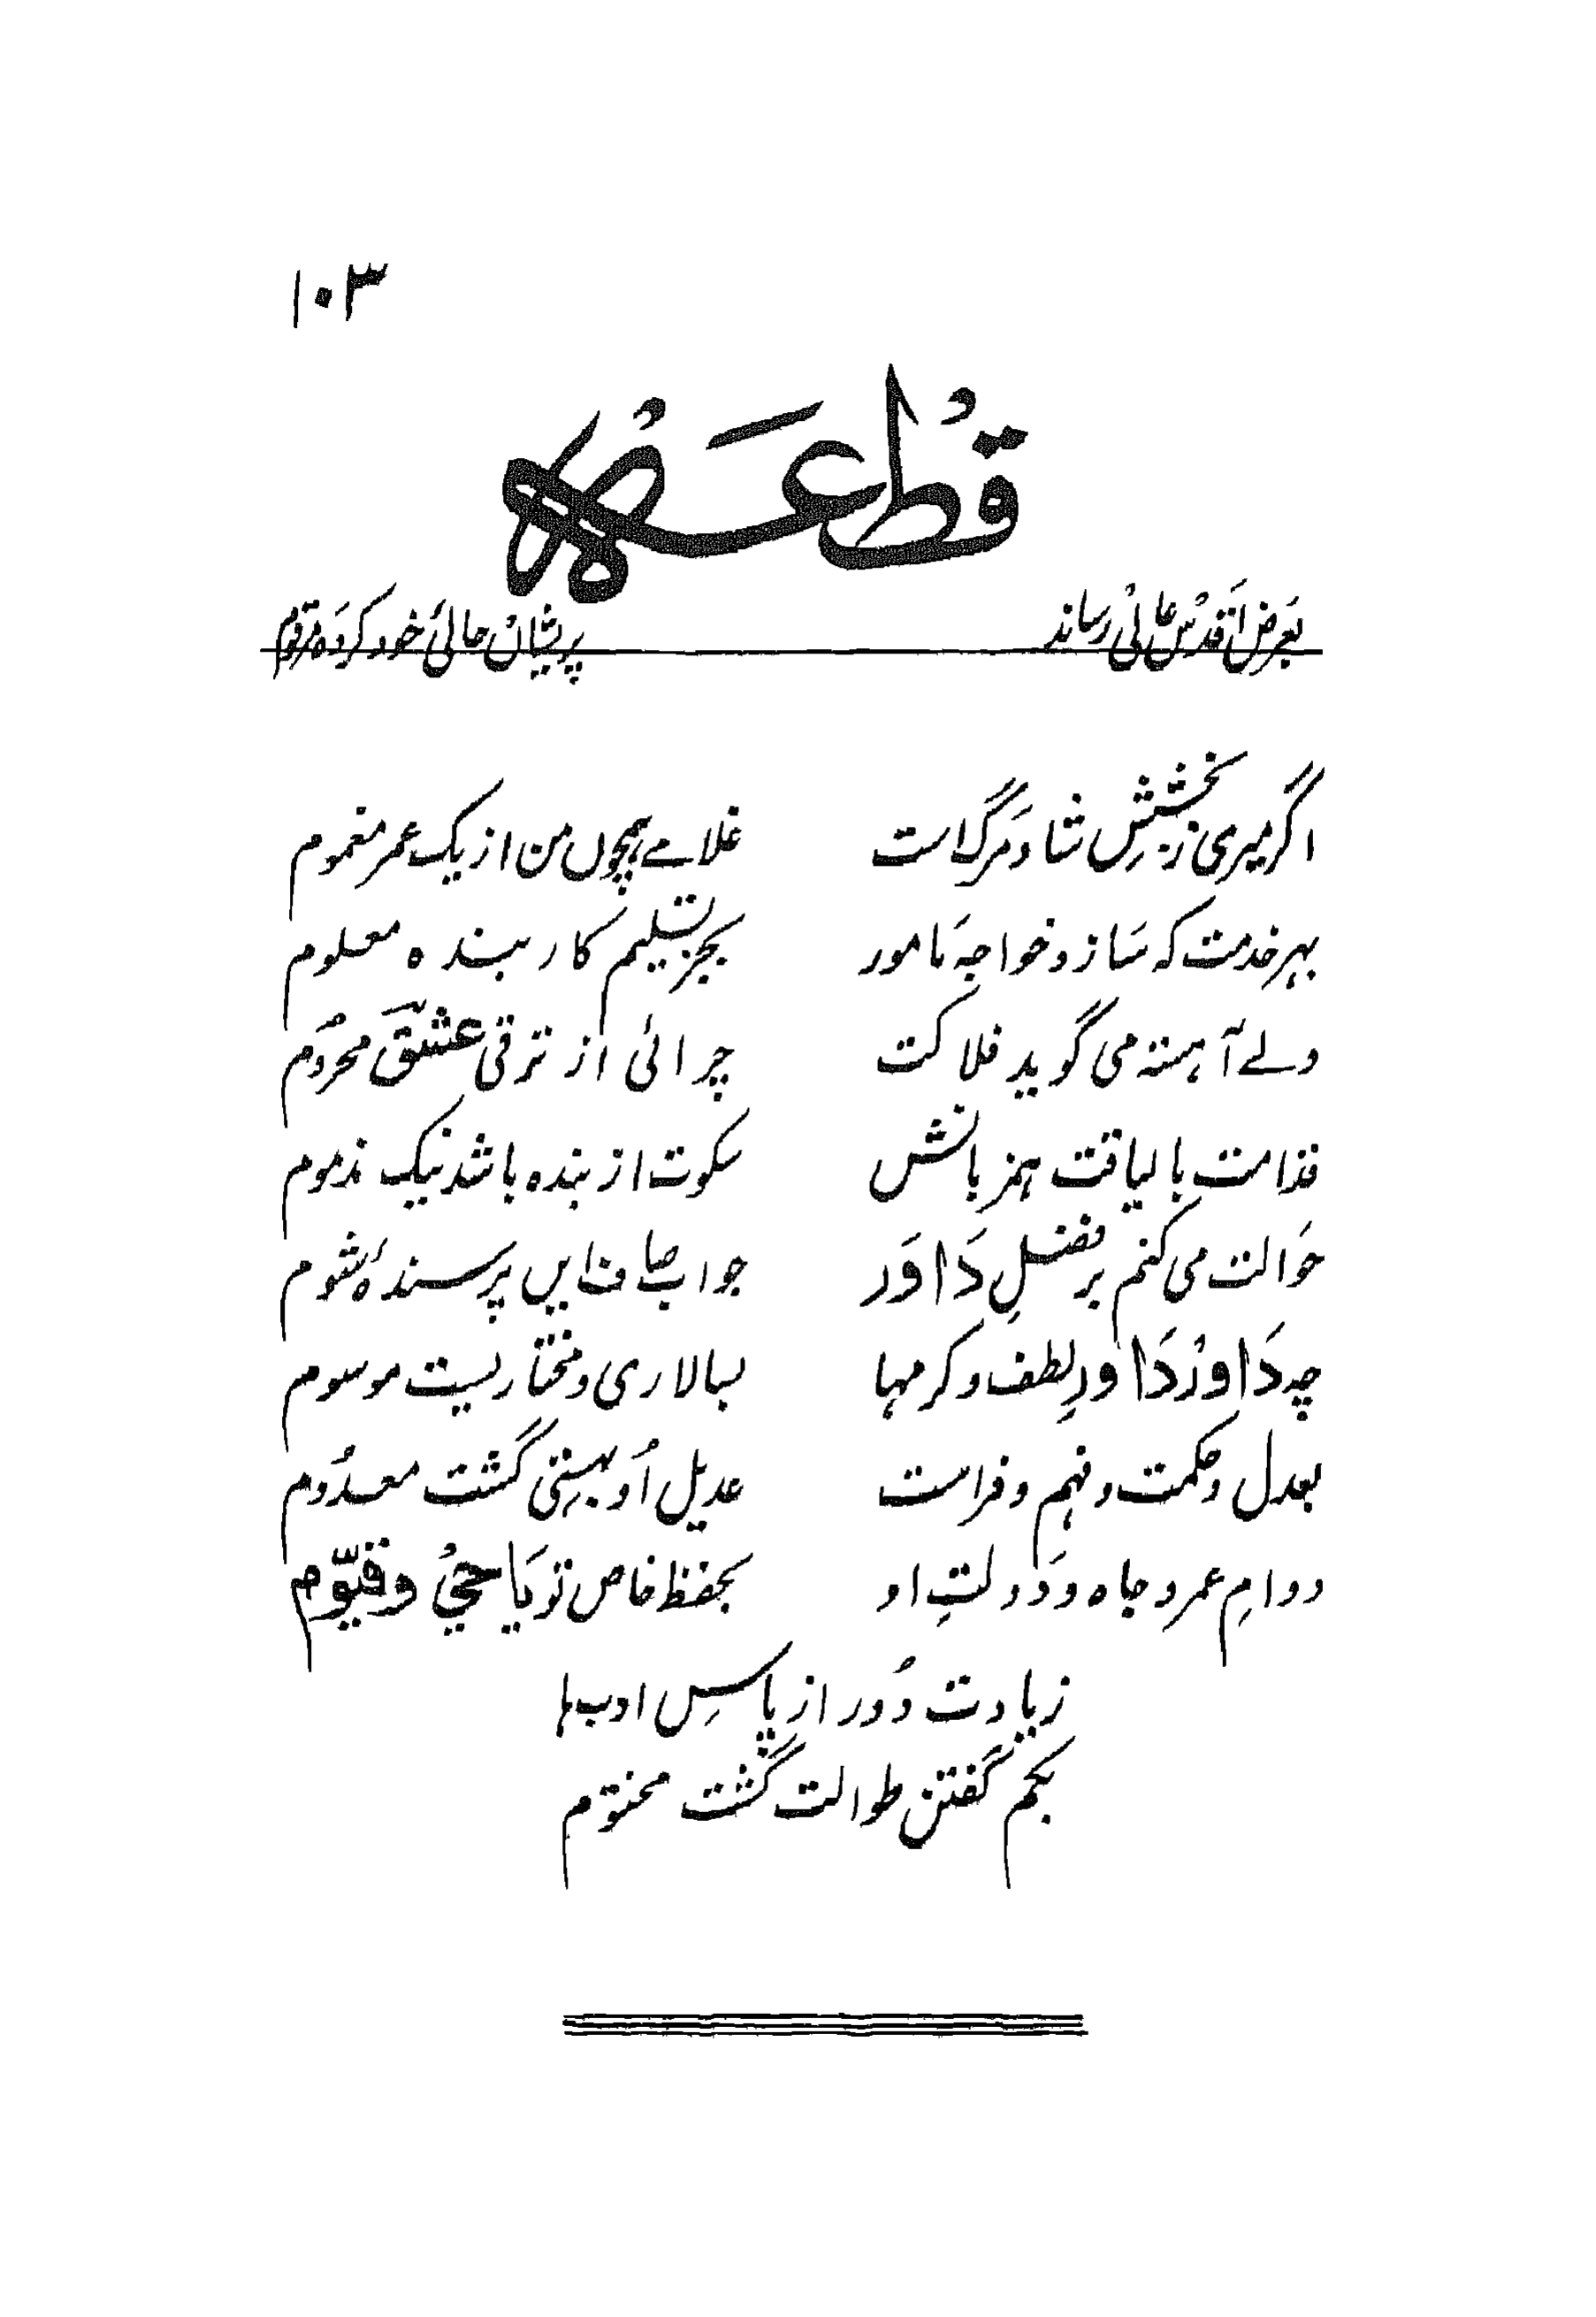 ۱۰۳
قُطعَہُ
بَعرضِ اَقدسِ عالیْ رساند پریشانْ حالیٔ خود کردَہ مرقوم
اگر میری زبخششِ شاد و مَرگ است غلامے ہمچوں من از یک عمر مغموم
بہر خدمت کہ سَازد خواجہ مَامور بجز تسلیم کار بندہ معلوم
ولے آہستہ می گوید فلاکت چرائی از ترقی عشقؔ محرُوم
قدامت با لیاقت ہمزبانش سکوت از بندہ باشد نیک مذموم
حَوالت می کنم بر فضلِ دَاوَر جواب صاف ایں پرسندۂ شوم
چہ دَاورْ دَاورِ لطف و کرمہا بسالاری و مختاریست موسوم
بعدل و حکمت و فہم و فراست عدیل اُو بہستی گشت معدُوم
دوامِ عمر و جاہ و دَولتِ او بحفظ خاص تو یَا حیُ و قیّوم
زیادت دُور از پاسِ ادب ہا
بکم گفتن طوالت گشت مختوم